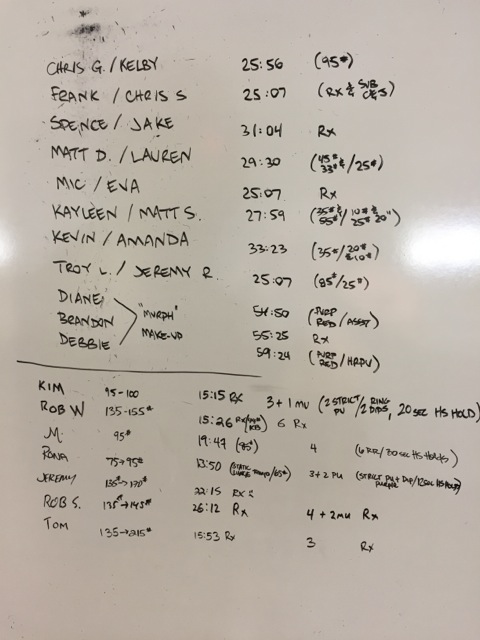 CHRIS G. / KELBY 25:56 (95#)
FRANK / CHRIS S 25:07 (RX & SUB C&S)
SPENCE / JAKE 31:04 RX
MATT D. / LAUREN 29:30 (45# & 33# / 25#)
MIC / EVA 25:07 RX
KAYLEEN / MATT S. 27:59 (35# & 55# / 10# & 25# 20")
KEVIN / AMANDA 33:23 (35# / 20# & 10#)
TROY L. / JEREMY R. 25:07 (85# / 25#)
DIANE 54:50 (PURP RED / ASSIST)
BRANDON "MURPH" MAKE-UP 55:25 RX
DEBBIE 59:24 (PURP RED / HRPU)
KIM 95-100 15:15 RX 3 + 1 MU (2 STRICT PU / 2 RING DIPS, 20 SEC HS HOLD)
ROB W 135-155# 15:26 6 RX
M. 95# 19:47 (75#) 4
RONA 75→95# 13:50 3 + 2 PU
JEREMY 135#→170# 22:15 RX
ROB S. 135#→145# 26:12 RX 4 + 2MU RX
TOM 135→215# 15:53 RX 3 RX